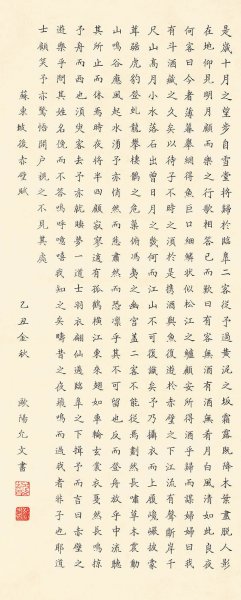 是歲十月之望步自雪堂將歸於臨臯二客從予過黃泥之坂霜露既降木葉盡脫人影
在地仰見明月顧而樂之行歌相答已而歎曰有客無酒有酒無肴月白風清如此良夜
何客曰今者薄暮舉網得魚巨口細鱗狀似松江之鱸顧安所得酒乎歸而謀諸婦婦曰我
有斗酒藏之久矣以待子不時之須於是攜酒與魚復遊於赤壁之下江流有聲斷岸千
尺山高月小水落石出曾日月之幾何而江山不可復識矣予乃攝衣而上履巉巖披蒙
茸踞虎豹登虬龍攀棲鶻之危巢俯馮夷之幽宮蓋二客不能從焉劃然長嘯草木震動
山鳴谷應風起水涌予亦悄然而悲肅然而恐凜乎其不可留也反而登舟放乎中流聽
其所止而休焉時夜將半四顧寂寥適有孤鶴橫江東來翅如車輪玄裳縞衣戛然長鳴掠
予舟而西也須臾客去予亦就睡夢一道士羽衣翩僊過臨臯之下揖予而言曰赤壁之
遊樂乎問其姓名俛而不答嗚呼噫嘻我知之矣疇昔之夜飛鳴而過我者非子也耶道
士顧笑予亦驚悟開戶視之不見其處
蘇東坡後赤壁賦
乙丑金秋
歐陽允文書